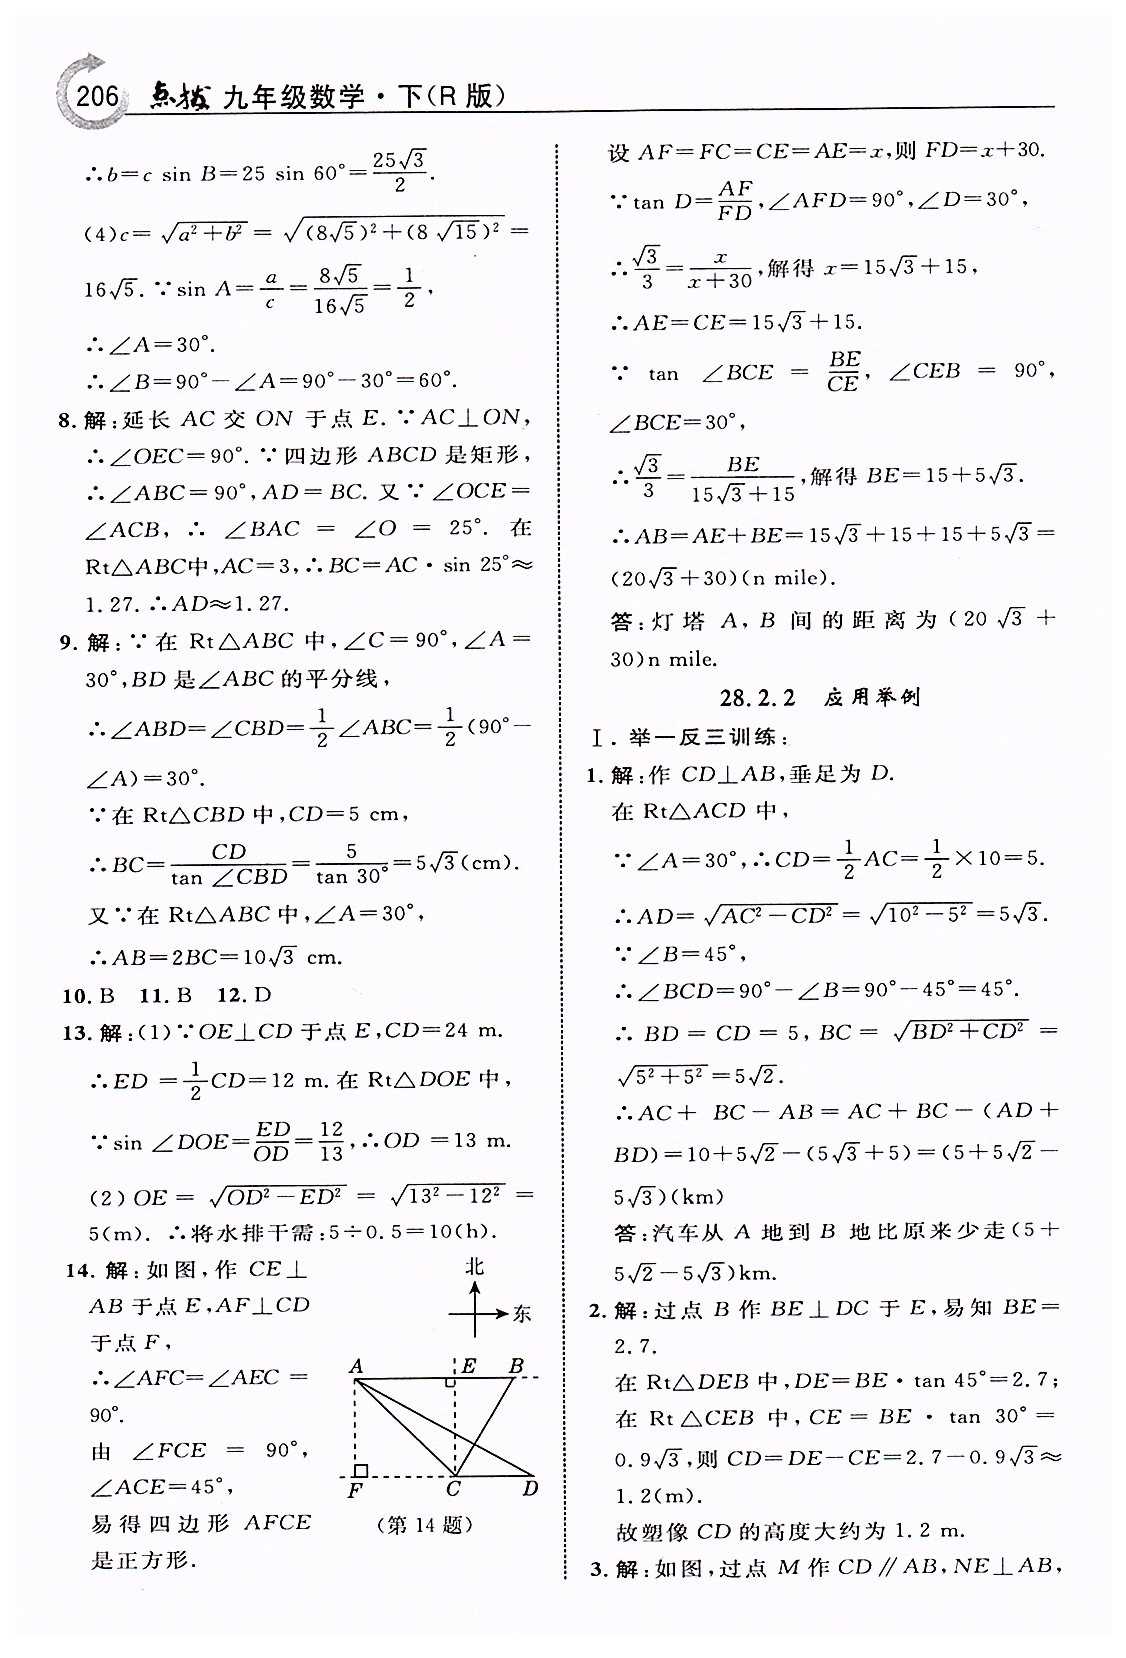 206 点拨 九年级数学·下(R版)
∴b=c sin B=25 sin 60°=25√3/2.
(4)c=√(a²+b²)=√((8√5)²+(8√15)²)=
16√5. ∵sin A=a/c=8√5/16√5=1/2,
∴∠A=30°.
∴∠B=90°-∠A=90°-30°=60°.
8. 解:延长 AC 交 ON 于点 E. ∵AC⊥ON,
∴∠OEC=90°. ∵四边形 ABCD 是矩形,
∴∠ABC=90°,AD=BC. 又∵∠OCE=
∠ACB, ∴ ∠BAC = ∠O = 25°. 在
Rt△ABC中,AC=3,∴BC=AC·sin 25°≈
1.27. ∴AD≈1.27.
9. 解:∵在 Rt△ABC 中,∠C=90°,∠A=
30°,BD 是∠ABC 的平分线,
∴∠ABD=∠CBD=1/2∠ABC=1/2(90°-
∠A)=30°.
∵在 Rt△CBD 中,CD=5 cm,
∴BC=CD/tan ∠CBD=5/tan 30°=5√3(cm).
又∵在 Rt△ABC 中,∠A=30°,
∴AB=2BC=10√3 cm.
10. B 11. B 12. D
13. 解:(1)∵OE⊥CD 于点 E,CD=24 m.
∴ED=1/2CD=12 m. 在 Rt△DOE 中,
∵sin ∠DOE=ED/OD=12/13,∴OD=13 m.
(2)OE=√(OD²-ED²)=√(13²-12²)=
5(m). ∴将水排干需:5÷0.5=10(h).
14. 解:如图,作 CE⊥
AB 于点 E,AF⊥CD
于点 F,
∴∠AFC=∠AEC=
90°.
由 ∠FCE = 90°,
∠ACE=45°,
易得四边形 AFCE
是正方形.
北
东
A E B
F C D
(第 14 题)
设 AF=FC=CE=AE=x,则 FD=x+30.
∵tan D=AF/FD,∠AFD=90°,∠D=30°,
∴√3/3=x/(x+30),解得 x=15√3+15,
∴AE=CE=15√3+15.
∵ tan ∠BCE = BE/CE, ∠CEB = 90°,
∠BCE=30°,
∴√3/3=BE/(15√3+15),解得 BE=15+5√3.
∴AB=AE+BE=15√3+15+15+5√3=
(20√3+30)(n mile).
答:灯塔 A,B 间的距离为(20√3+
30)n mile.
28.2.2 应用举例
Ⅰ. 举一反三训练:
1. 解:作 CD⊥AB,垂足为 D.
在 Rt△ACD 中,
∵∠A=30°,∴CD=1/2AC=1/2×10=5.
∴AD=√(AC²-CD²)=√(10²-5²)=5√3.
∵∠B=45°,
∴∠BCD=90°-∠B=90°-45°=45°.
∴ BD = CD = 5, BC = √(BD²+CD²) =
√(5²+5²)=5√2.
∴AC+BC-AB=AC+BC-(AD+
BD)=10+5√2-(5√3+5)=(5+5√2-
5√3)(km)
答:汽车从 A 地到 B 地比原来少走(5+
5√2-5√3)km.
2. 解:过点 B 作 BE⊥DC 于 E,易知 BE=
2.7.
在 Rt△DEB 中,DE=BE·tan 45°=2.7;
在 Rt△CEB 中,CE=BE·tan 30°=
0.9√3,则 CD=DE-CE=2.7-0.9√3≈
1.2(m).
故塑像 CD 的高度大约为 1.2 m.
3. 解:如图,过点 M 作 CD∥AB,NE⊥AB,